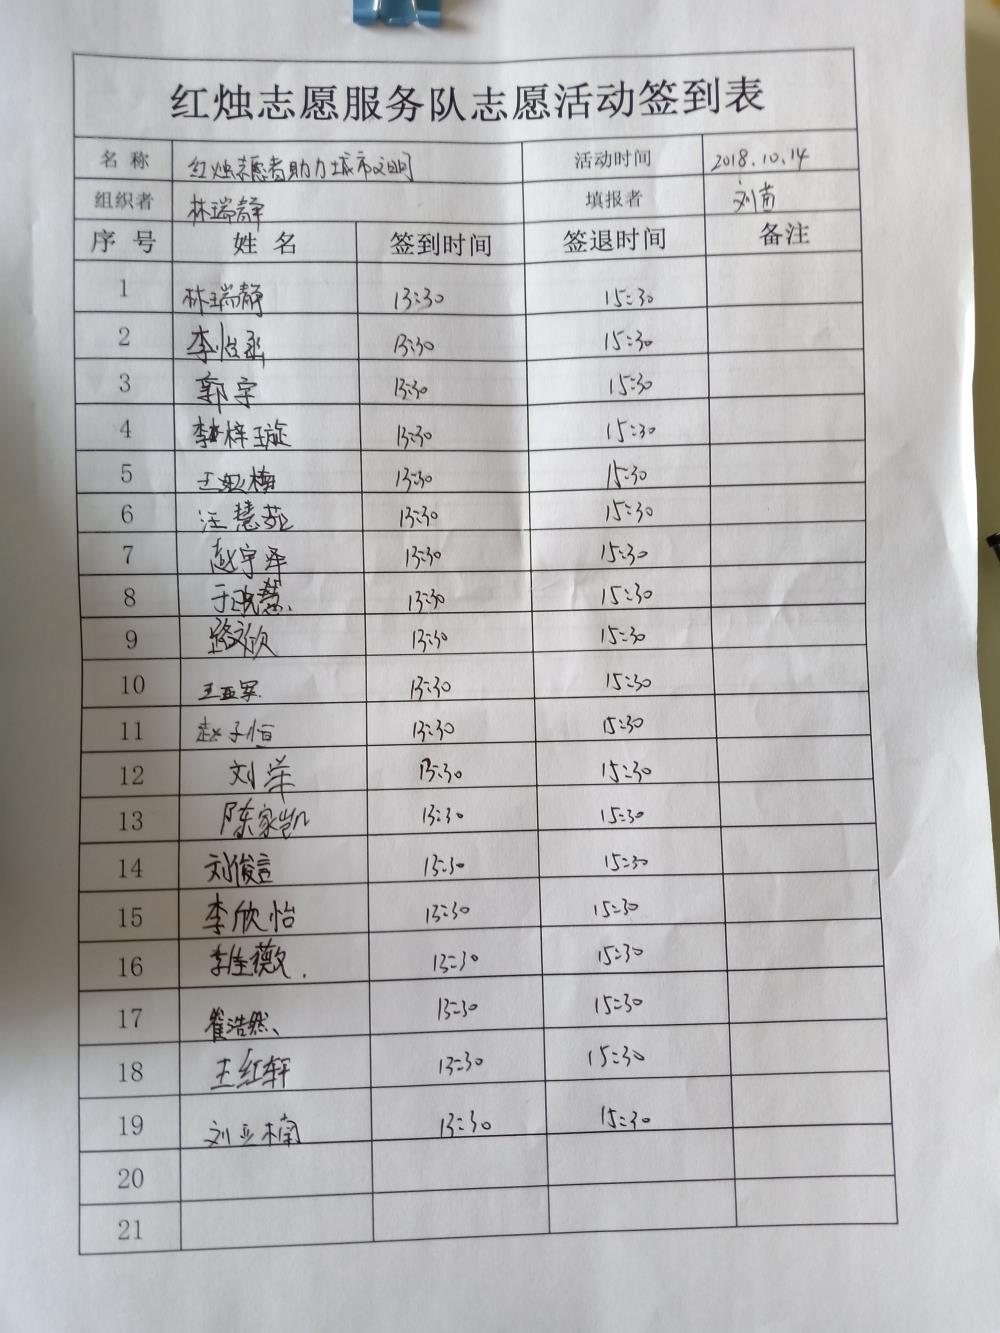 红烛志愿服务队志愿活动签到表
名 称 红烛志愿者助力城市文明 活动时间 2018.10.14
组织者 林瑞静 填报者 刘苗
序 号 姓 名 签到时间 签退时间 备注
1 林瑞静 13:30 15:30
2 李怡 13:30 15:30
3 郭宇 13:30 15:30
4 李梓璇 13:30 15:30
5 王梅 13:30 15:30
6 汪慧苑 13:30 15:30
7 赵宇泽 13:30 15:30
8 于慧 13:30 15:30
9 路文欣 13:30 15:30
10 王亚军 13:30 15:30
11 赵子恒 13:30 15:30
12 刘 13:30 15:30
13 陈家凯 13:30 15:30
14 刘俊言 13:30 15:30
15 李欣怡 13:30 15:30
16 李佳薇 13:30 15:30
17 崔浩然 13:30 15:30
18 王红轩 13:30 15:30
19 刘亚楠 13:30 15:30
20
21